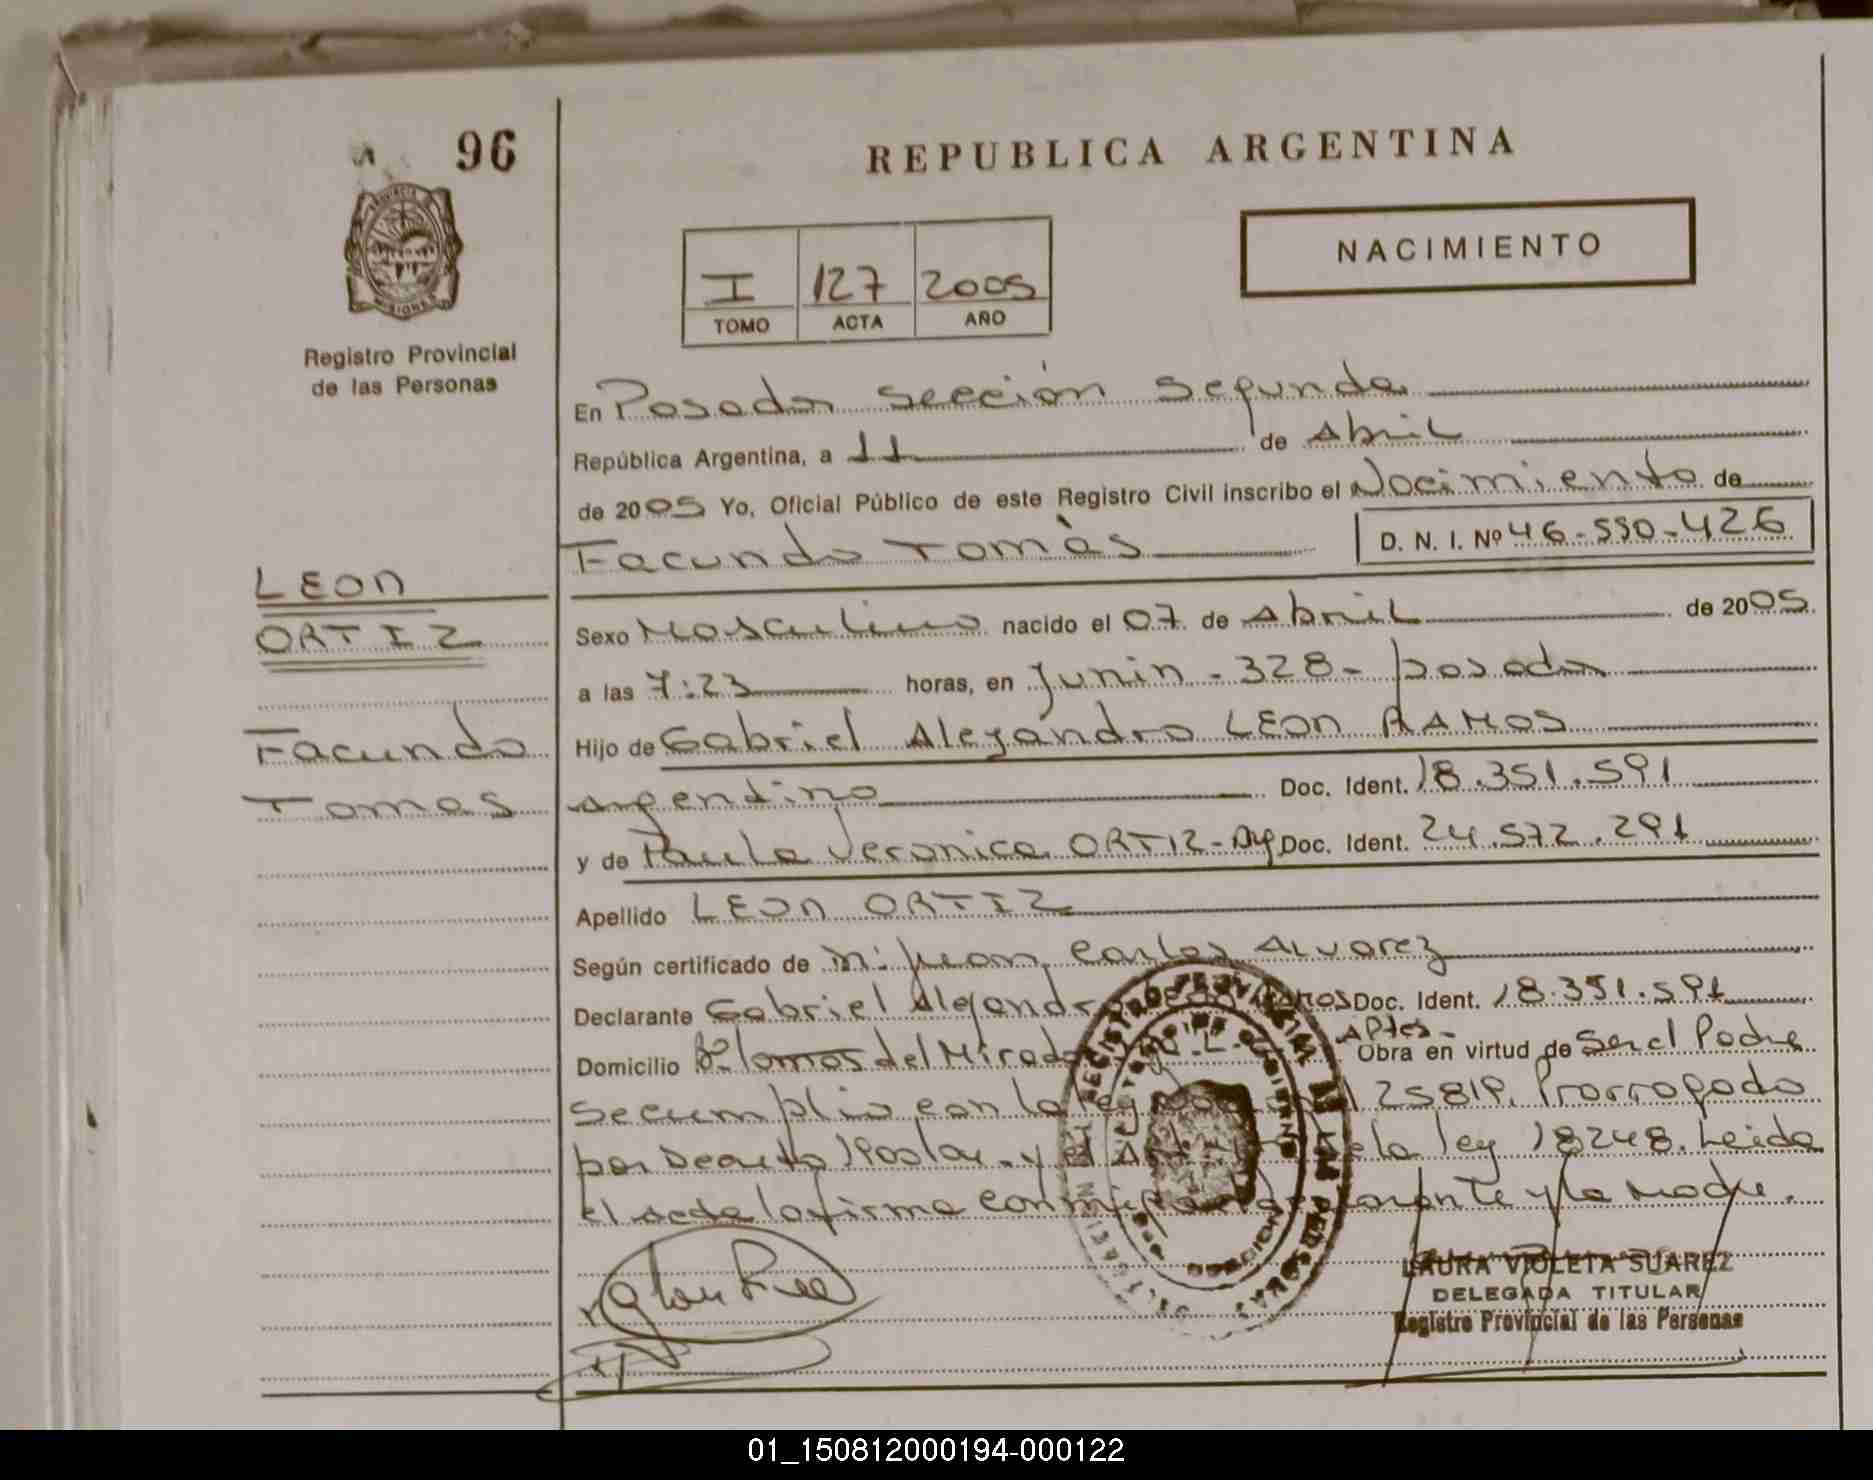 96
REPUBLICA ARGENTINA
PROVINCIA
MISIONES
NACIMIENTO
I 127 2005
TOMO ACTA AÑO
Registro Provincial
de las Personas
En Posadas Sección Segunda
República Argentina, a 11 de Abril
de 2005 Yo, Oficial Público de este Registro Civil inscribo el Nacimiento de
Facundo Tomàs D. N. I. Nº 46-550-426
LEON
ORTIZ
Facundo
Tomas
Sexo Masculino nacido el 07 de Abril de 2005
a las 7:23 horas, en Junin - 328 - posadas
Hijo de Gabriel Alejandro LEON RAMOS
Argentino Doc. Ident. 18.351.591
y de Paula Veronica ORTIZ - Doc. Ident. 24.572.291
Apellido LEON ORTIZ
Según certificado de Juan Carlos Alvarez
Declarante Gabriel Alejandro RAMOS Doc. Ident. 18.351.591
Domicilio Lomas del Mirador Aptos- Obra en virtud de Ser el Padre
Se cumplio con la ley 25819. Prorrogado
por Decreto y el Art de la ley 18248. Leida
el acta la firma conmigo y la Madre.
LAURA VIOLETA SUAREZ
DELEGADA TITULAR
Registro Provincial de las Personas
01_150812000194-000122